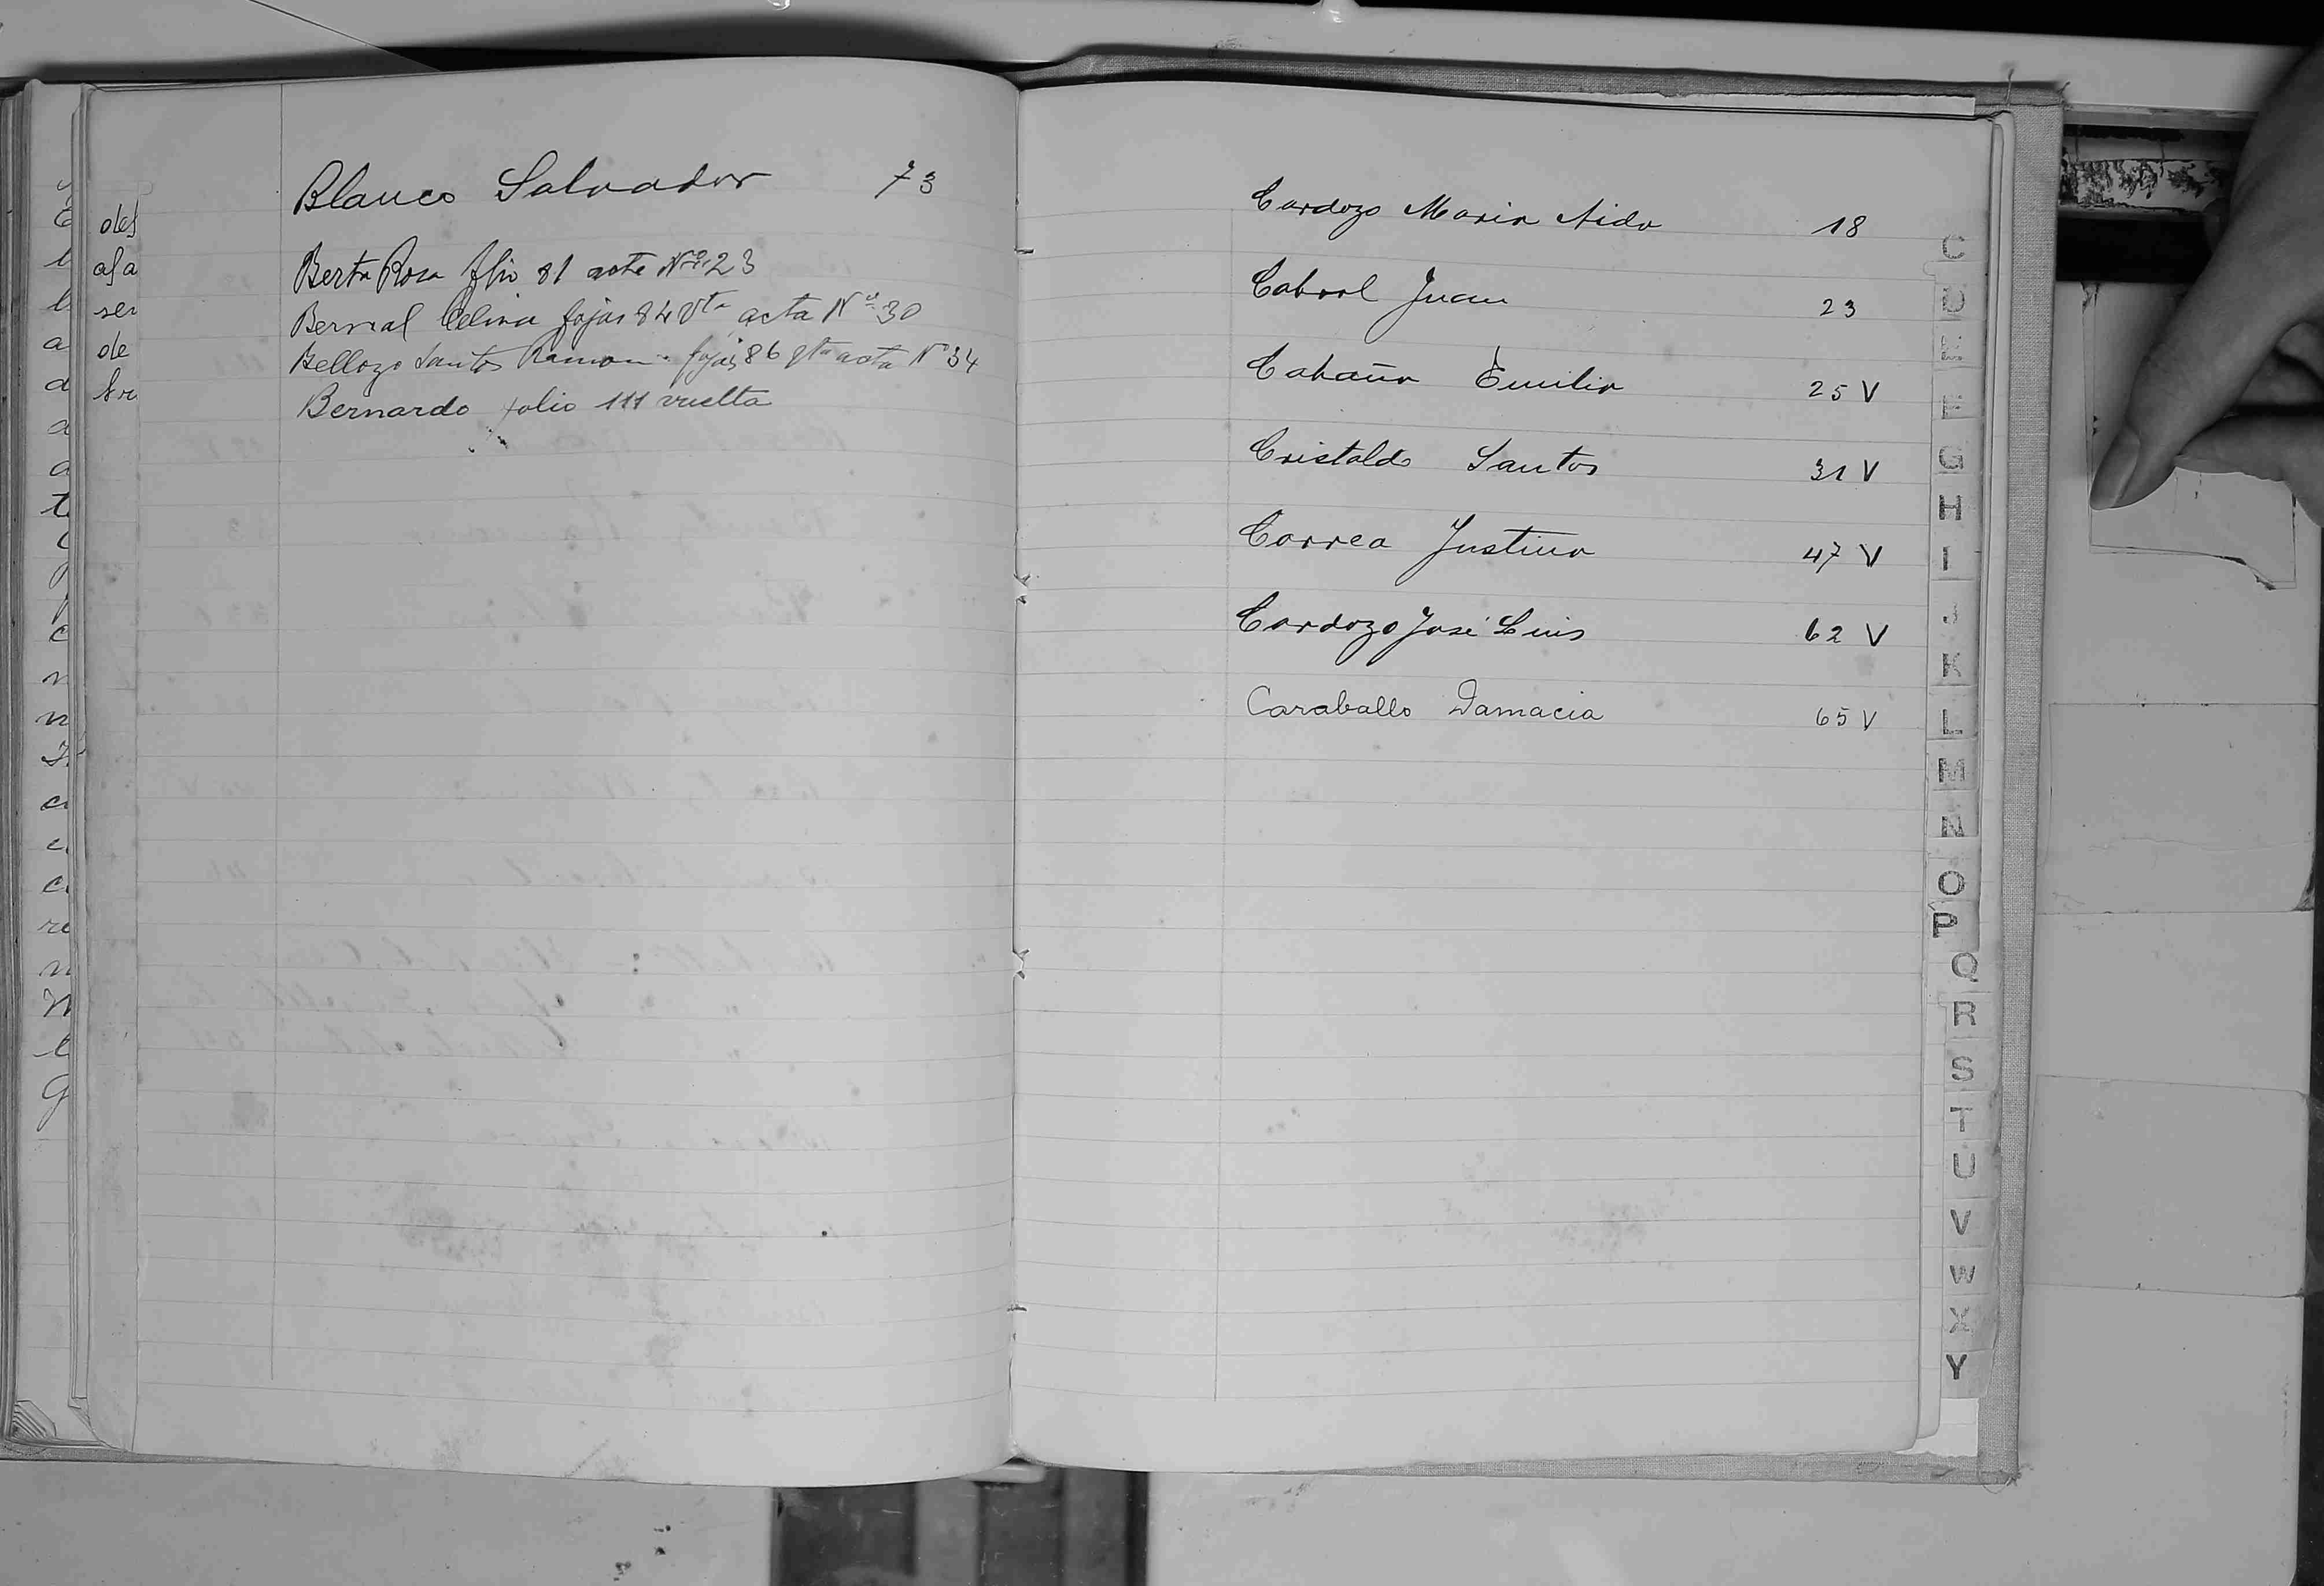 Blanco Salvador 73
Berta Rosa flio 81 acta Nº 23
Bernal Celina fojas 84 Vta acta Nº 30
Bellozo Santos Ramon fojas 86 vta acta Nº 34
Bernardo folio 111 vuelta
des
afa
ser
de
Cardozo Maria Aida 18
Cabral Juan 23
Cabaña Emilia 25 V
Cristaldo Santos 31 V
Correa Justina 47 V
Cardozo José Luis 62 V
Caraballo Damacia 65 V
C
D
E
F
G
H
I
J
K
L
M
N
O
P
Q
R
S
T
U
V
W
X
Y